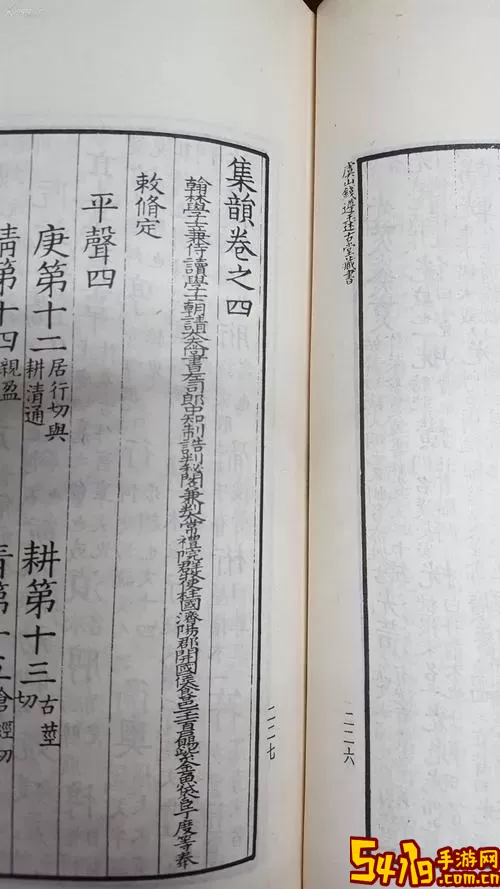 虞山錢遵王述古堂藏書
二二六
集韻卷之四
翰林學士兼侍讀學士朝請大夫尚書左司郎中知制誥判秘閣兼判太常禮院群牧使柱國濟陽郡開國侯食邑百戶賜紫金魚袋臣丁度等奉
敕脩定
平聲四
庚第十二居行切與耕清通 耕第十三古莖切
清第十四親盈 青第十五倉經切
二二七
手游网